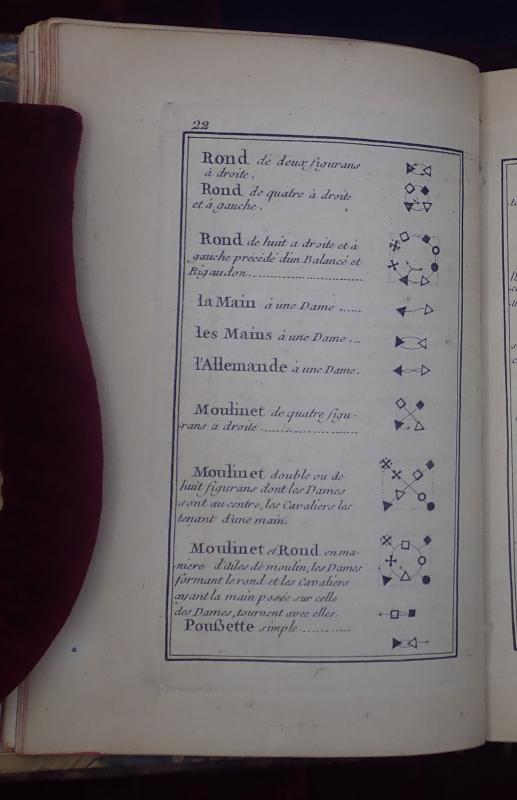 22
Rond de deux figurans
à droite.
Rond de quatre à droite
et à gauche.
Rond de huit a droite et à
gauche précédé d'un Balancé et
Rigaudon....................
la Main à une Dame ......
les Mains à une Dame ...
l'Allemande à une Dame.
Moulinet de quatre figu-
rans à droite ....................
Moulinet double ou de
huit figurans dont les Dames
sont au centre, les Cavaliers les
tenant d'une main.
Moulinet et Rond en ma-
niere d'aîles de moulin, les Dames
formant le rond et les Cavaliers
ayant la main posée sur celle
des Dames, tournent avec elles.
Poußette simple ............